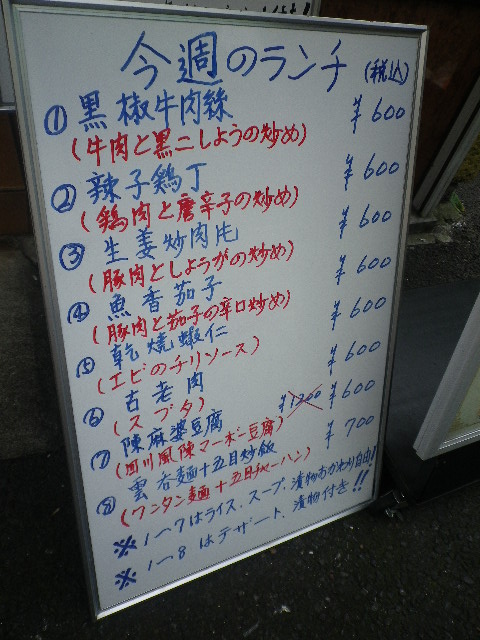 今週のランチ (税込)
① 黒椒牛肉絲 ¥600
(牛肉と黒こしょうの炒め)
② 辣子鶏丁 ¥600
(鶏肉と唐辛子の炒め)
③ 生姜炒肉片 ¥600
(豚肉としょうがの炒め)
④ 魚香茄子 ¥600
(豚肉と茄子の辛口炒め)
⑤ 乾焼蝦仁 ¥600
(エビのチリソース)
⑥ 古老肉 ¥600
(スブタ)
⑦ 陳麻婆豆腐 ¥1200 ¥600
(四川風陳マーボー豆腐)
⑧ 雲呑麺+五目炒飯 ¥700
(ワンタン麺+五目チャーハン)
※ 1〜7はライス、スープ、漬物おかわり自由!
※ 1〜8はデザート、漬物付き!!